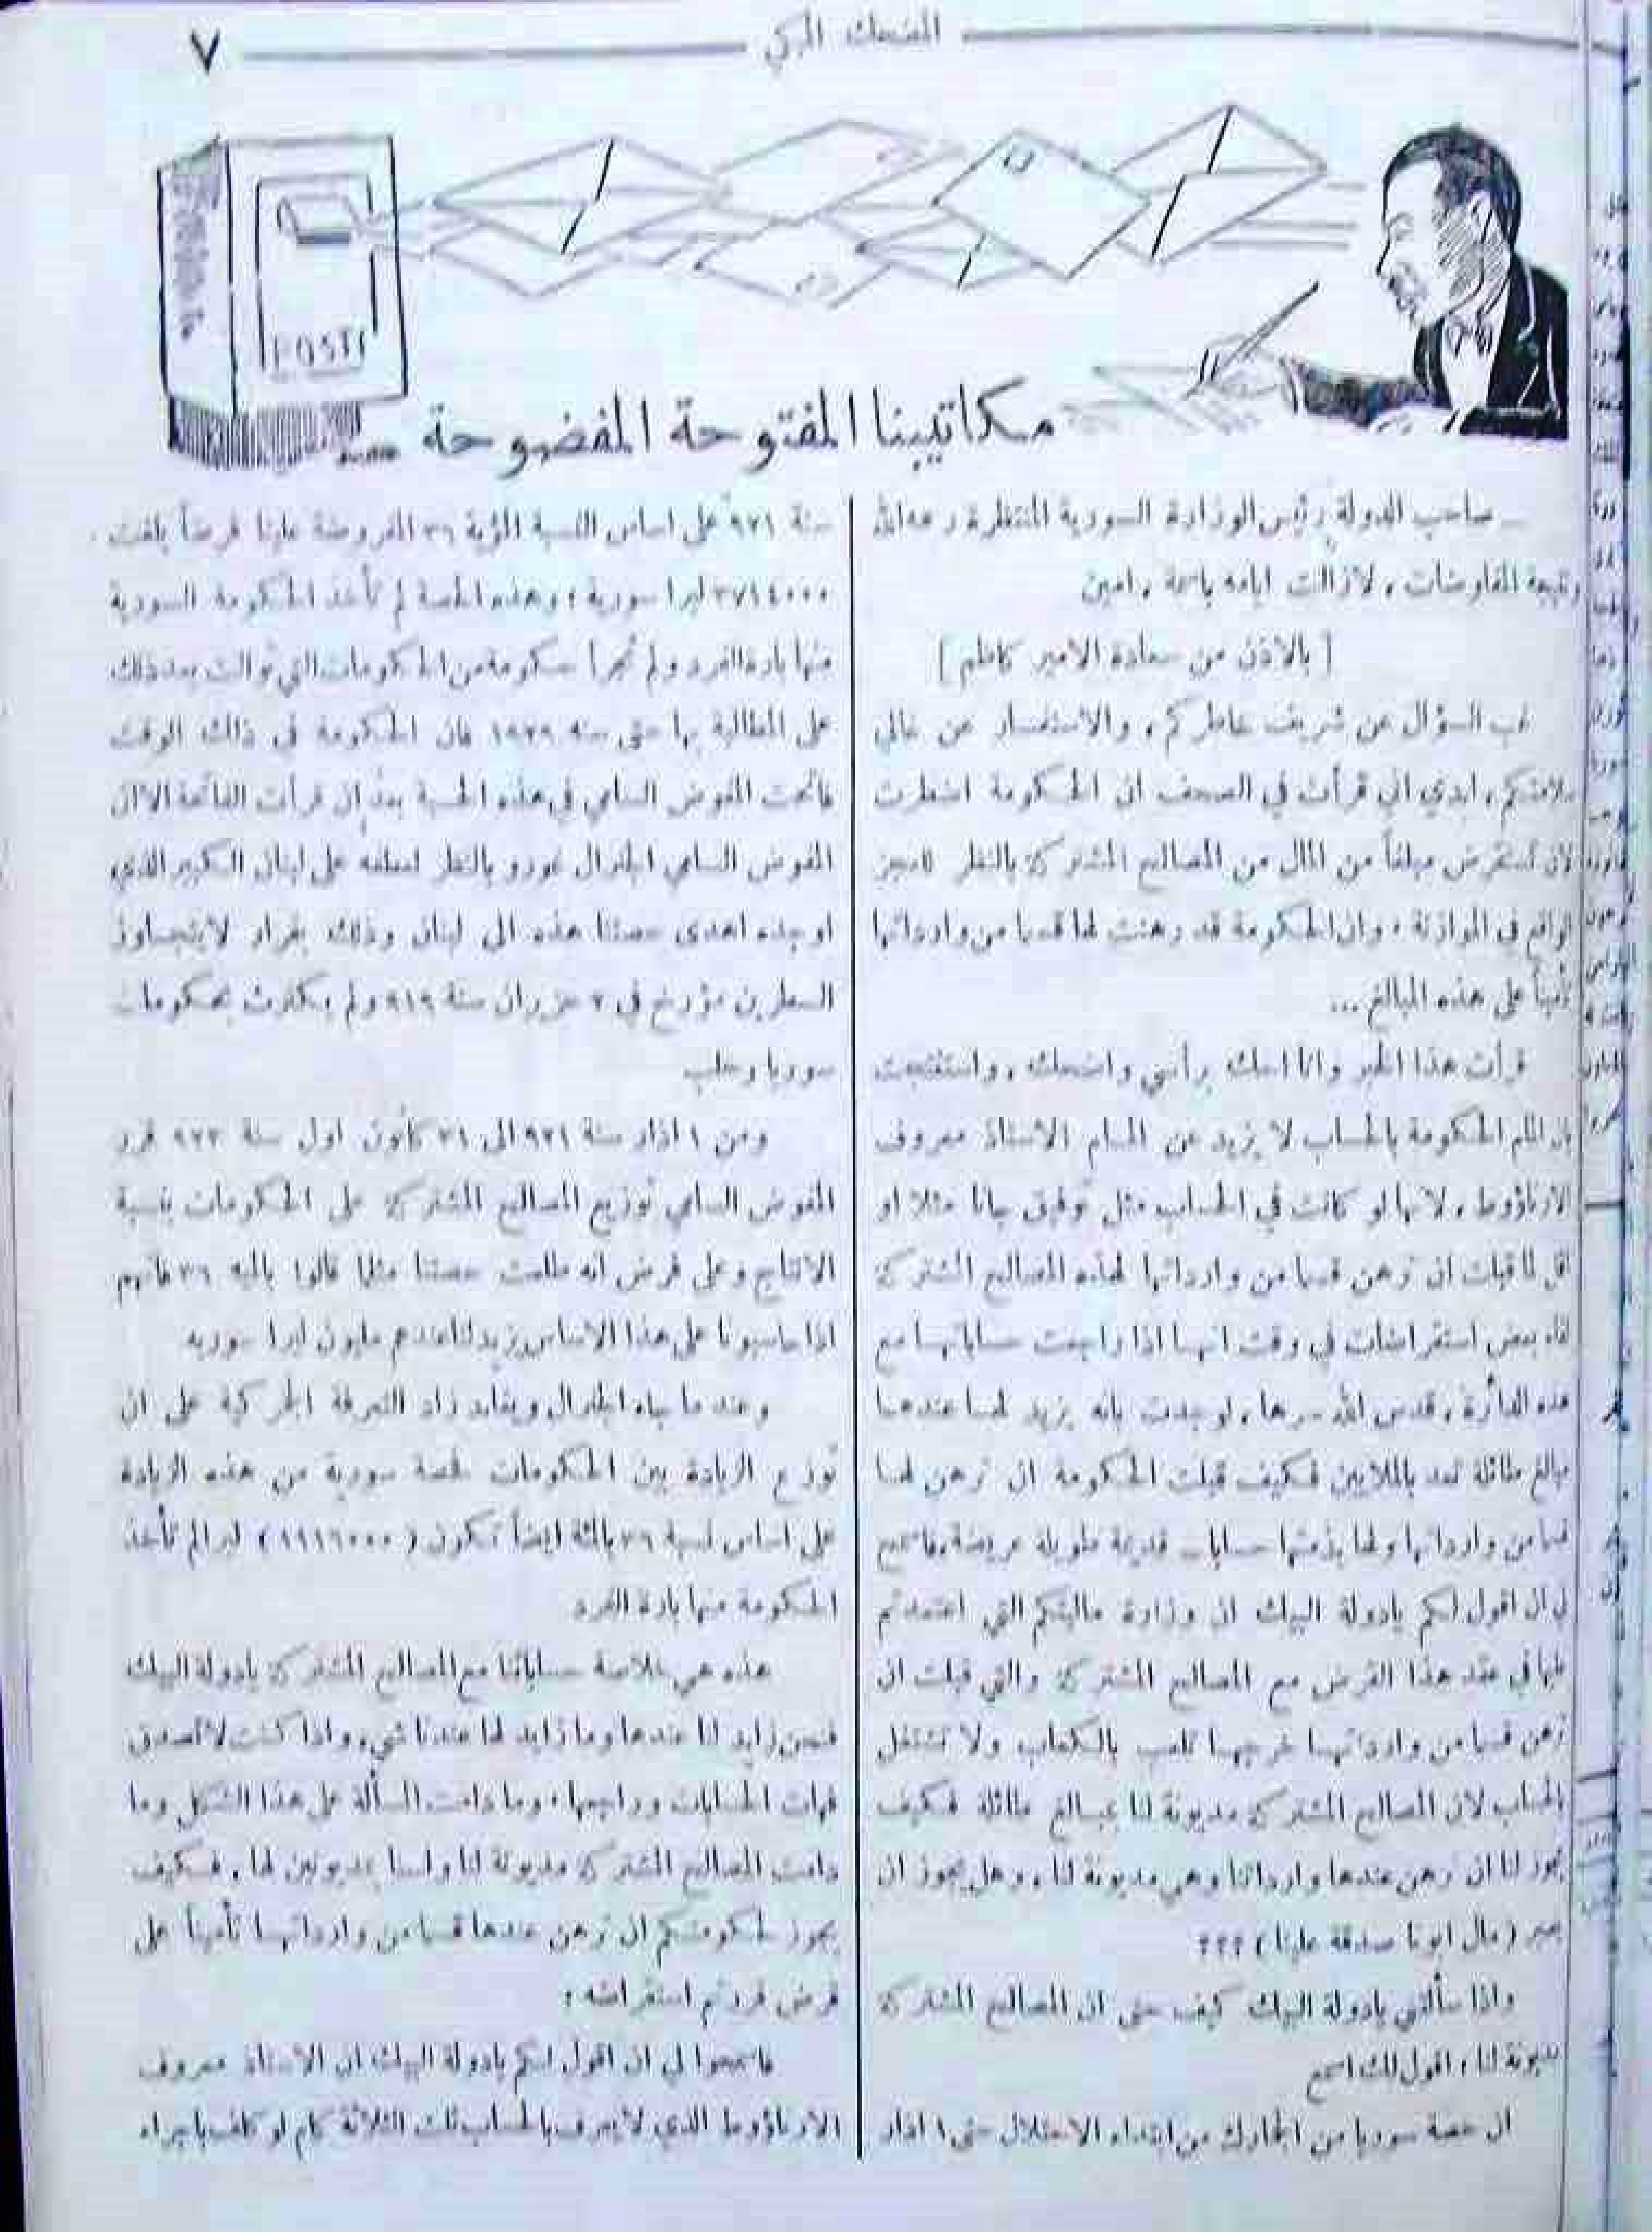 المضحك المبكي
٧
POST
مكاتيبنا المفتوحة المفضوحة
ـ صاحب الدولة رئيس الوزارة السورية المنتظرة رعاه الله
نتيجة المفاوضات ، لازالت ايامه باسمة ، امين
[ بالاذن من سعادة الامير كاظم ]
غب السؤال عن شريف خاطركم ، والاستفسار عن غالي
سلامتكم ، ابدي اني قرأت في الصحف ان الحكومة اضطرت
لان تستقرض مبلغاً من المال من المصالح المشتركة بالنظر للعجز
الواقع في الموازنة ، وان الحكومة قد رهنت لها قسما من وارداتها
تأميناً على هذه المبالغ ...
قرأت هذا الخبر وانا امسك برأسي واضحك ، واستنتجت
بان المام الحكومة بالحساب لا يزيد عن المام الاستاذ معروف
الارناؤوط ، لانها لو كانت في الحساب مثل توفيق جانا مثلا او
اقل لما قبلت ان ترهن قسما من وارداتها لهذه المصالح المشتركة
لقاء بعض استقراضات في وقت انها اذا راجعت حساباتها مع
هذه الدائرة ، قدس الله سرها ، لوجدت بانه يزيد لها عندها
مبالغ طائلة تعد بالملايين فكيف قبلت الحكومة ان ترهن لها
قسما من وارداتها ولها بذمتها حسابات قديمة طويلة عريضة ، فاسمح
لي ان اقول لكم يادولة البيك ان وزارة ماليتكم التي اعتمدتم
عليها في عقد هذا القرض مع المصالح المشتركة والتي قبلت ان
ترهن قسما من وارداتها خرجها تلعب بالكعاب ولا تشتغل
بالحساب لان المصالح المشتركة مديونة لنا بمبالغ طائلة فكيف
يجوز لنا ان نرهن عندها وارداتنا وهي مديونة لنا ، وهل يجوز ان
يصير ( مال ابونا صدقة علينا ) ؟؟؟
واذا سألتني يادولة البيك كيف حتى ان المصالح المشتركة
مديونة لنا ، اقول لك اسمع
ان حصة سوريا من الجمارك من ابتداء الاحتلال حتى ١ اذار
سنة ٩٢١ على اساس النسبة المئوية ٣٦ المفروضة علينا فرضاً بلغت
٣٧١٤٠٠٠ ليرا سورية ، وهذه الحصة لم تأخذ الحكومة السورية
منها بارة الفرد ولم تجرأ حكومة من الحكومات التي توالت بعد ذلك
على المطالبة بها حتى سنه ١٩٢٩ فان الحكومة في ذلك الوقت
فاتحت المفوض السامي في هذه الحسبة بعد ان قرأت الفاتحة الا ان
المفوض السامي الجنرال غورو بالنظر لعطفه على لبنان الكبير الذي
اوجده اهدى حصتنا هذه الى لبنان وذلك بقرار لايتجاوز
السطرين مؤرخ في ٧ حزيران سنة ٩١٩ ولم يكترث بحكومات
سوريا وحلب
ومن ١ اذار سنة ٩٢١ الى ٣١ كانون اول سنة ٩٢٣ قرر
المفوض السامي توزيع المصالح المشتركة على الحكومات بنسبة
الانتاج وعلى فرض انه طلعت حصتنا مثلما قالوا بالميه ٣٦ فانهم
اذا حاسبونا على هذا الاساس يزيد لنا عندهم مليون ليرا سوريه
وعندما جاء الجنرال ويغاند زاد التعرفة الجمركية على ان
توزع الزيادة بين الحكومات فحصة سورية من هذه الزيادة
على اساس نسبة ٣٦ بالمئة ايضاً تكون ( ١٩١٦٠٠٠ ) ليرا لم تأخذ
الحكومة منها بارة الفرد
هذه هي خلاصة حساباتنا مع المصالح المشتركة يادولة البيك
فنحن زايد لنا عندها وما زايد لها عندنا شيء واذا كنت لا تصدق
فهات الحسابات وراجعها ، وما دامت المسألة على هذا الشكل وما
دامت المصالح المشتركة مديونة لنا ولسنا بمديونين لها ، فكيف
يجوز لحكومتكم ان ترهن عندها قسما من وارداتها تأميناً على
قرض قررتم استقراضه ؟
فاسمحوا لي ان اقول لكم يادولة البيك ان الاستاذ معروف
الارناؤوط الذي لايعرف بالحساب تلت التلاتة كام لو كلف باجراء